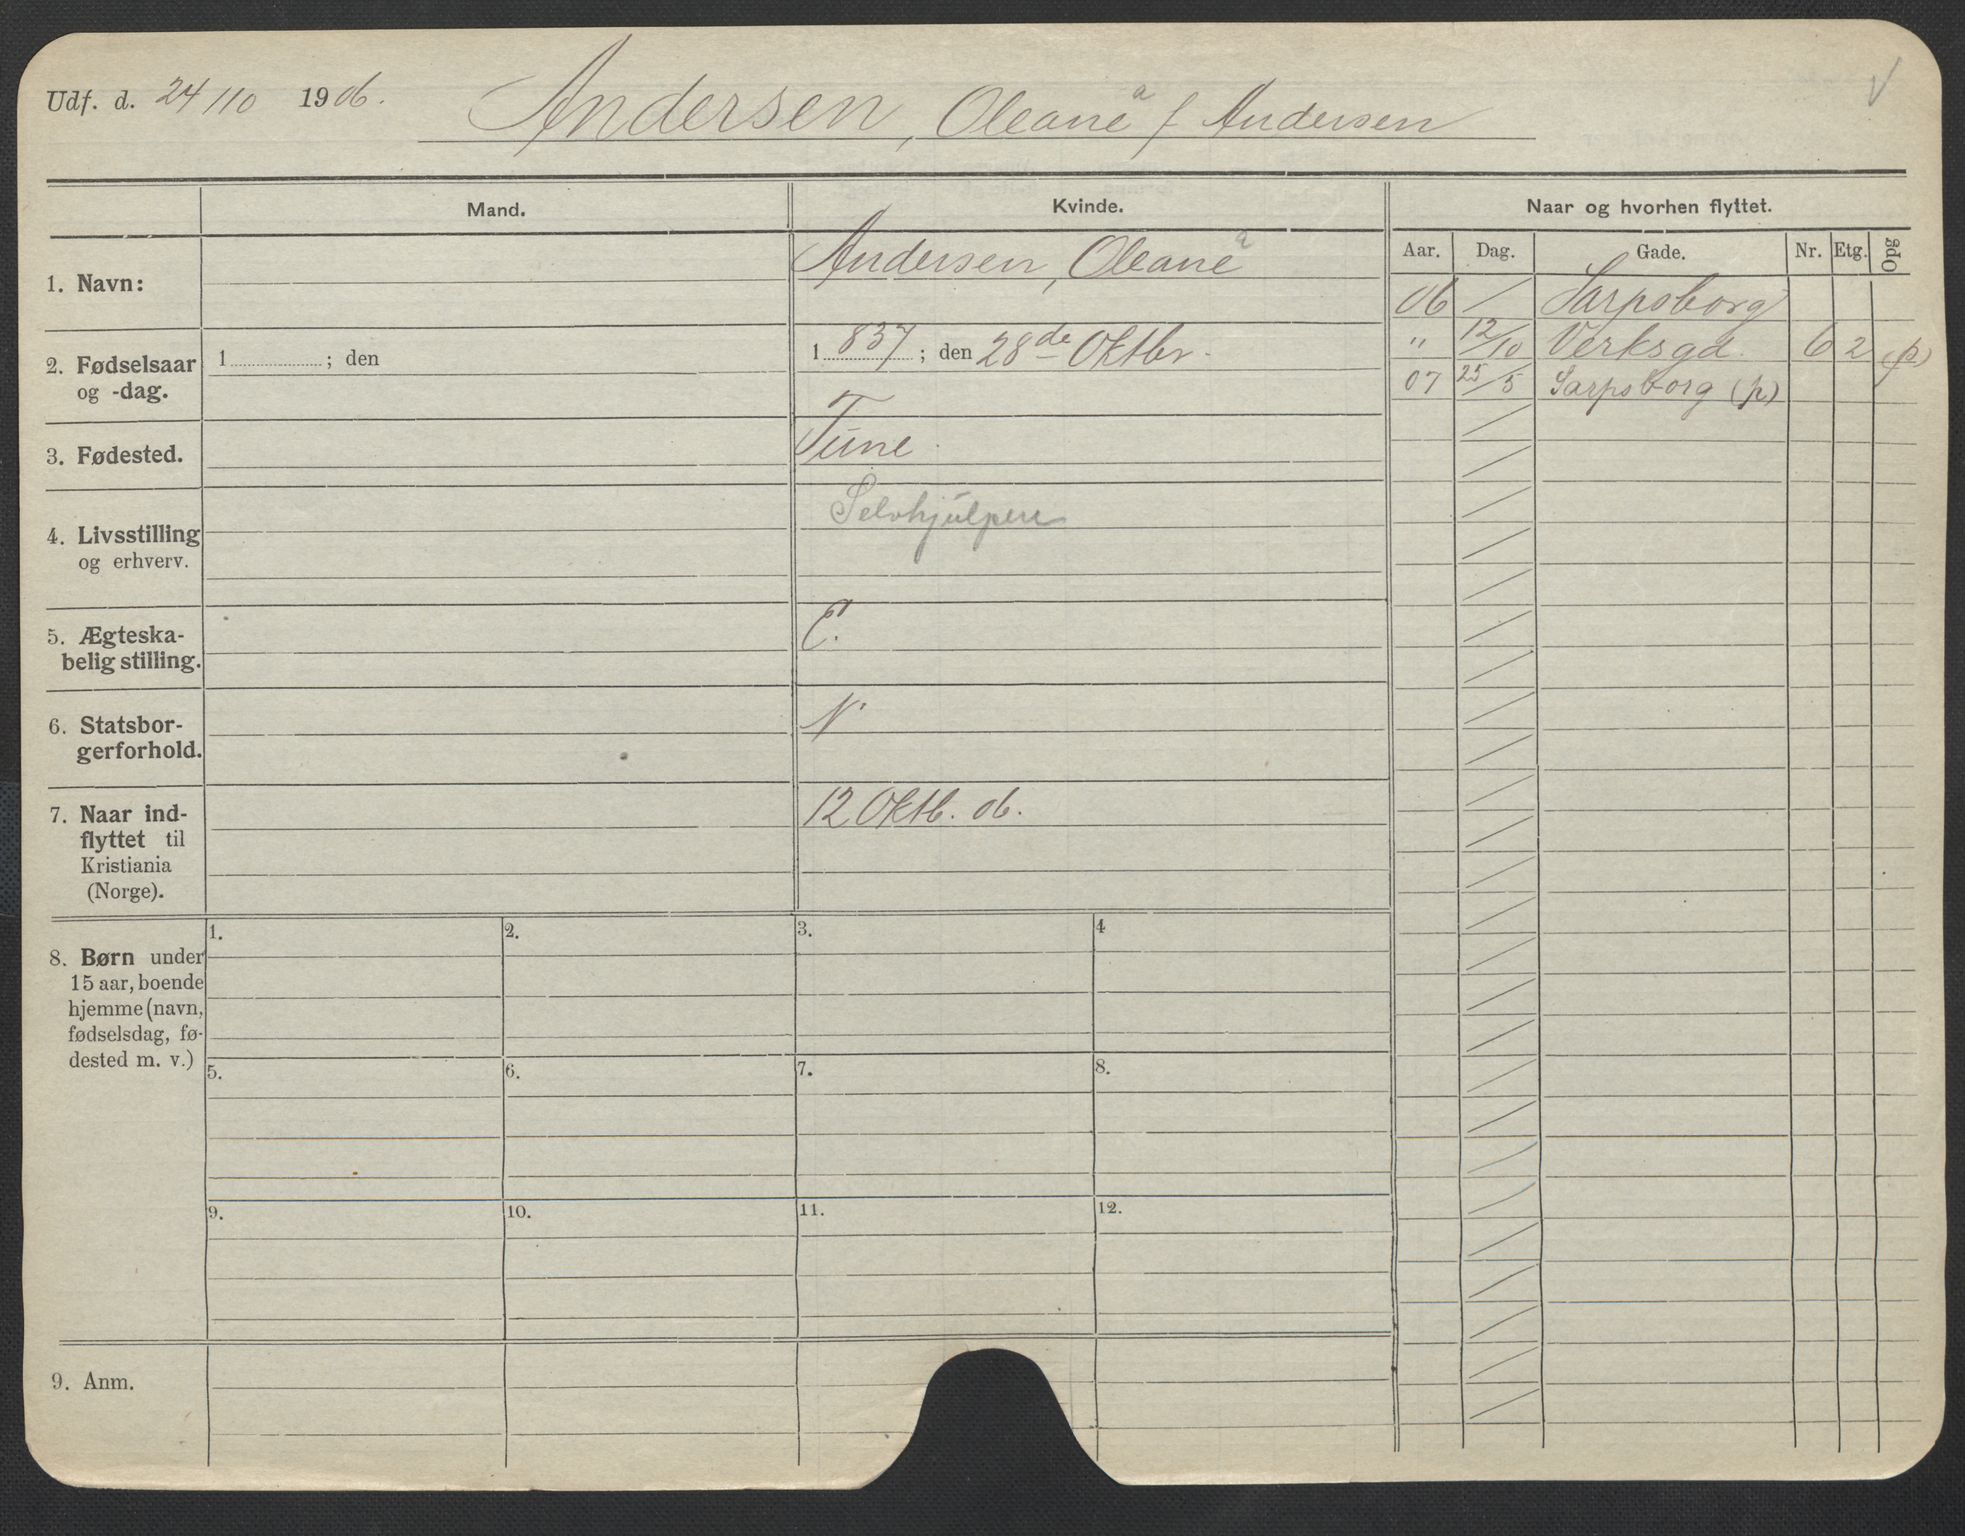 Udf. d. 24/10 1906. Andersen, Oleane a f Andersen
Mand. Kvinde. Naar og hvorhen flyttet.
Aar. Dag. Gade. Nr. Etg. Opg
1. Navn: Andersen, Oleane a
2. Fødselsaar og -dag. 1 ; den 1837 ; den 28de Oktbr.
3. Fødested. Tune.
4. Livsstilling og erhverv. Selvhjulpen
5. Ægteska-
belig stilling. E.
6. Statsbor-
gerforhold. N
7. Naar ind-
flyttet til
Kristiania
(Norge). 12 Oktb. 06.
06 / Sarpsborg
" 12/10 Verksgd. 6 2 (p)
07 25/5 Sarpsborg (p)
8. Børn under
15 aar, boende
hjemme (navn,
fødselsdag, fø-
dested m. v.)
1. 2. 3. 4
5. 6. 7. 8.
9. 10. 11. 12.
9. Anm.